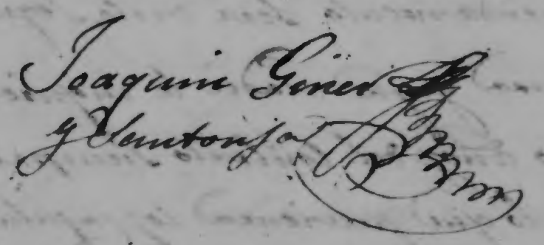 Joaquin Giner
y Santonja